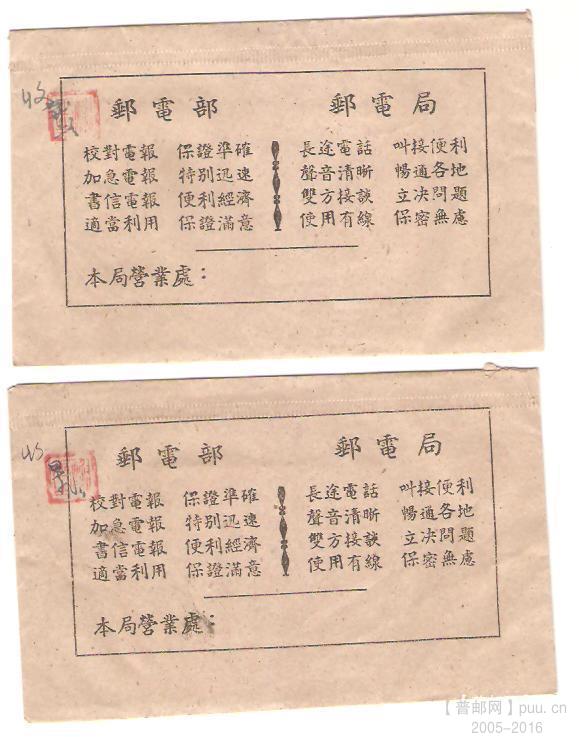 收
郵電部 郵電局
校對電報 保證準確 長途電話 叫接便利
加急電報 特别迅速 聲音清晰 暢通各地
書信電報 便利經濟 雙方接談 立决問題
適當利用 保證滿意 使用有線 保密無慮
本局營業處：
收
郵電部 郵電局
校對電報 保證準確 長途電話 叫接便利
加急電報 特别迅速 聲音清晰 暢通各地
書信電報 便利經濟 雙方接談 立决問題
適當利用 保證滿意 使用有線 保密無慮
本局營業處：
【普邮网】puu.cn
2005-2016